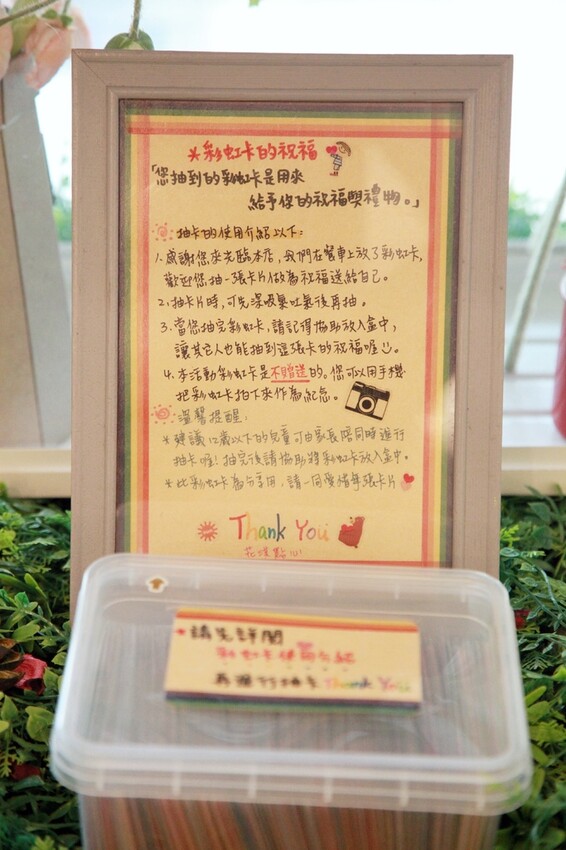 *彩虹卡的祝福
「您抽到的彩虹卡是用來
給予你的祝福與禮物。」
抽卡的使用介紹以下:
1.感謝您來光臨本店,我們在餐車上放了彩虹卡,
歡迎您抽一張卡片做為祝福送給自己。
2.抽卡片時,可先深吸氣吐氣後再抽。
3.當您抽完彩虹卡,請記得協助放入盒中,
讓其它人也能抽到這張卡的祝福喔
4.本活動彩虹卡是不贈送的。您可以用手機
把彩虹卡拍下來作為紀念。
溫馨提醒:
*建議12歲以下的兒童可由家長陪同時進行
抽卡喔!抽完後請協助將彩虹卡放入盒中。
*此彩虹卡為分享用,請一同愛惜每張卡片
Thank You
點心
請先詳閱
彩虹卡使用介紹
再進行抽卡 Thank You